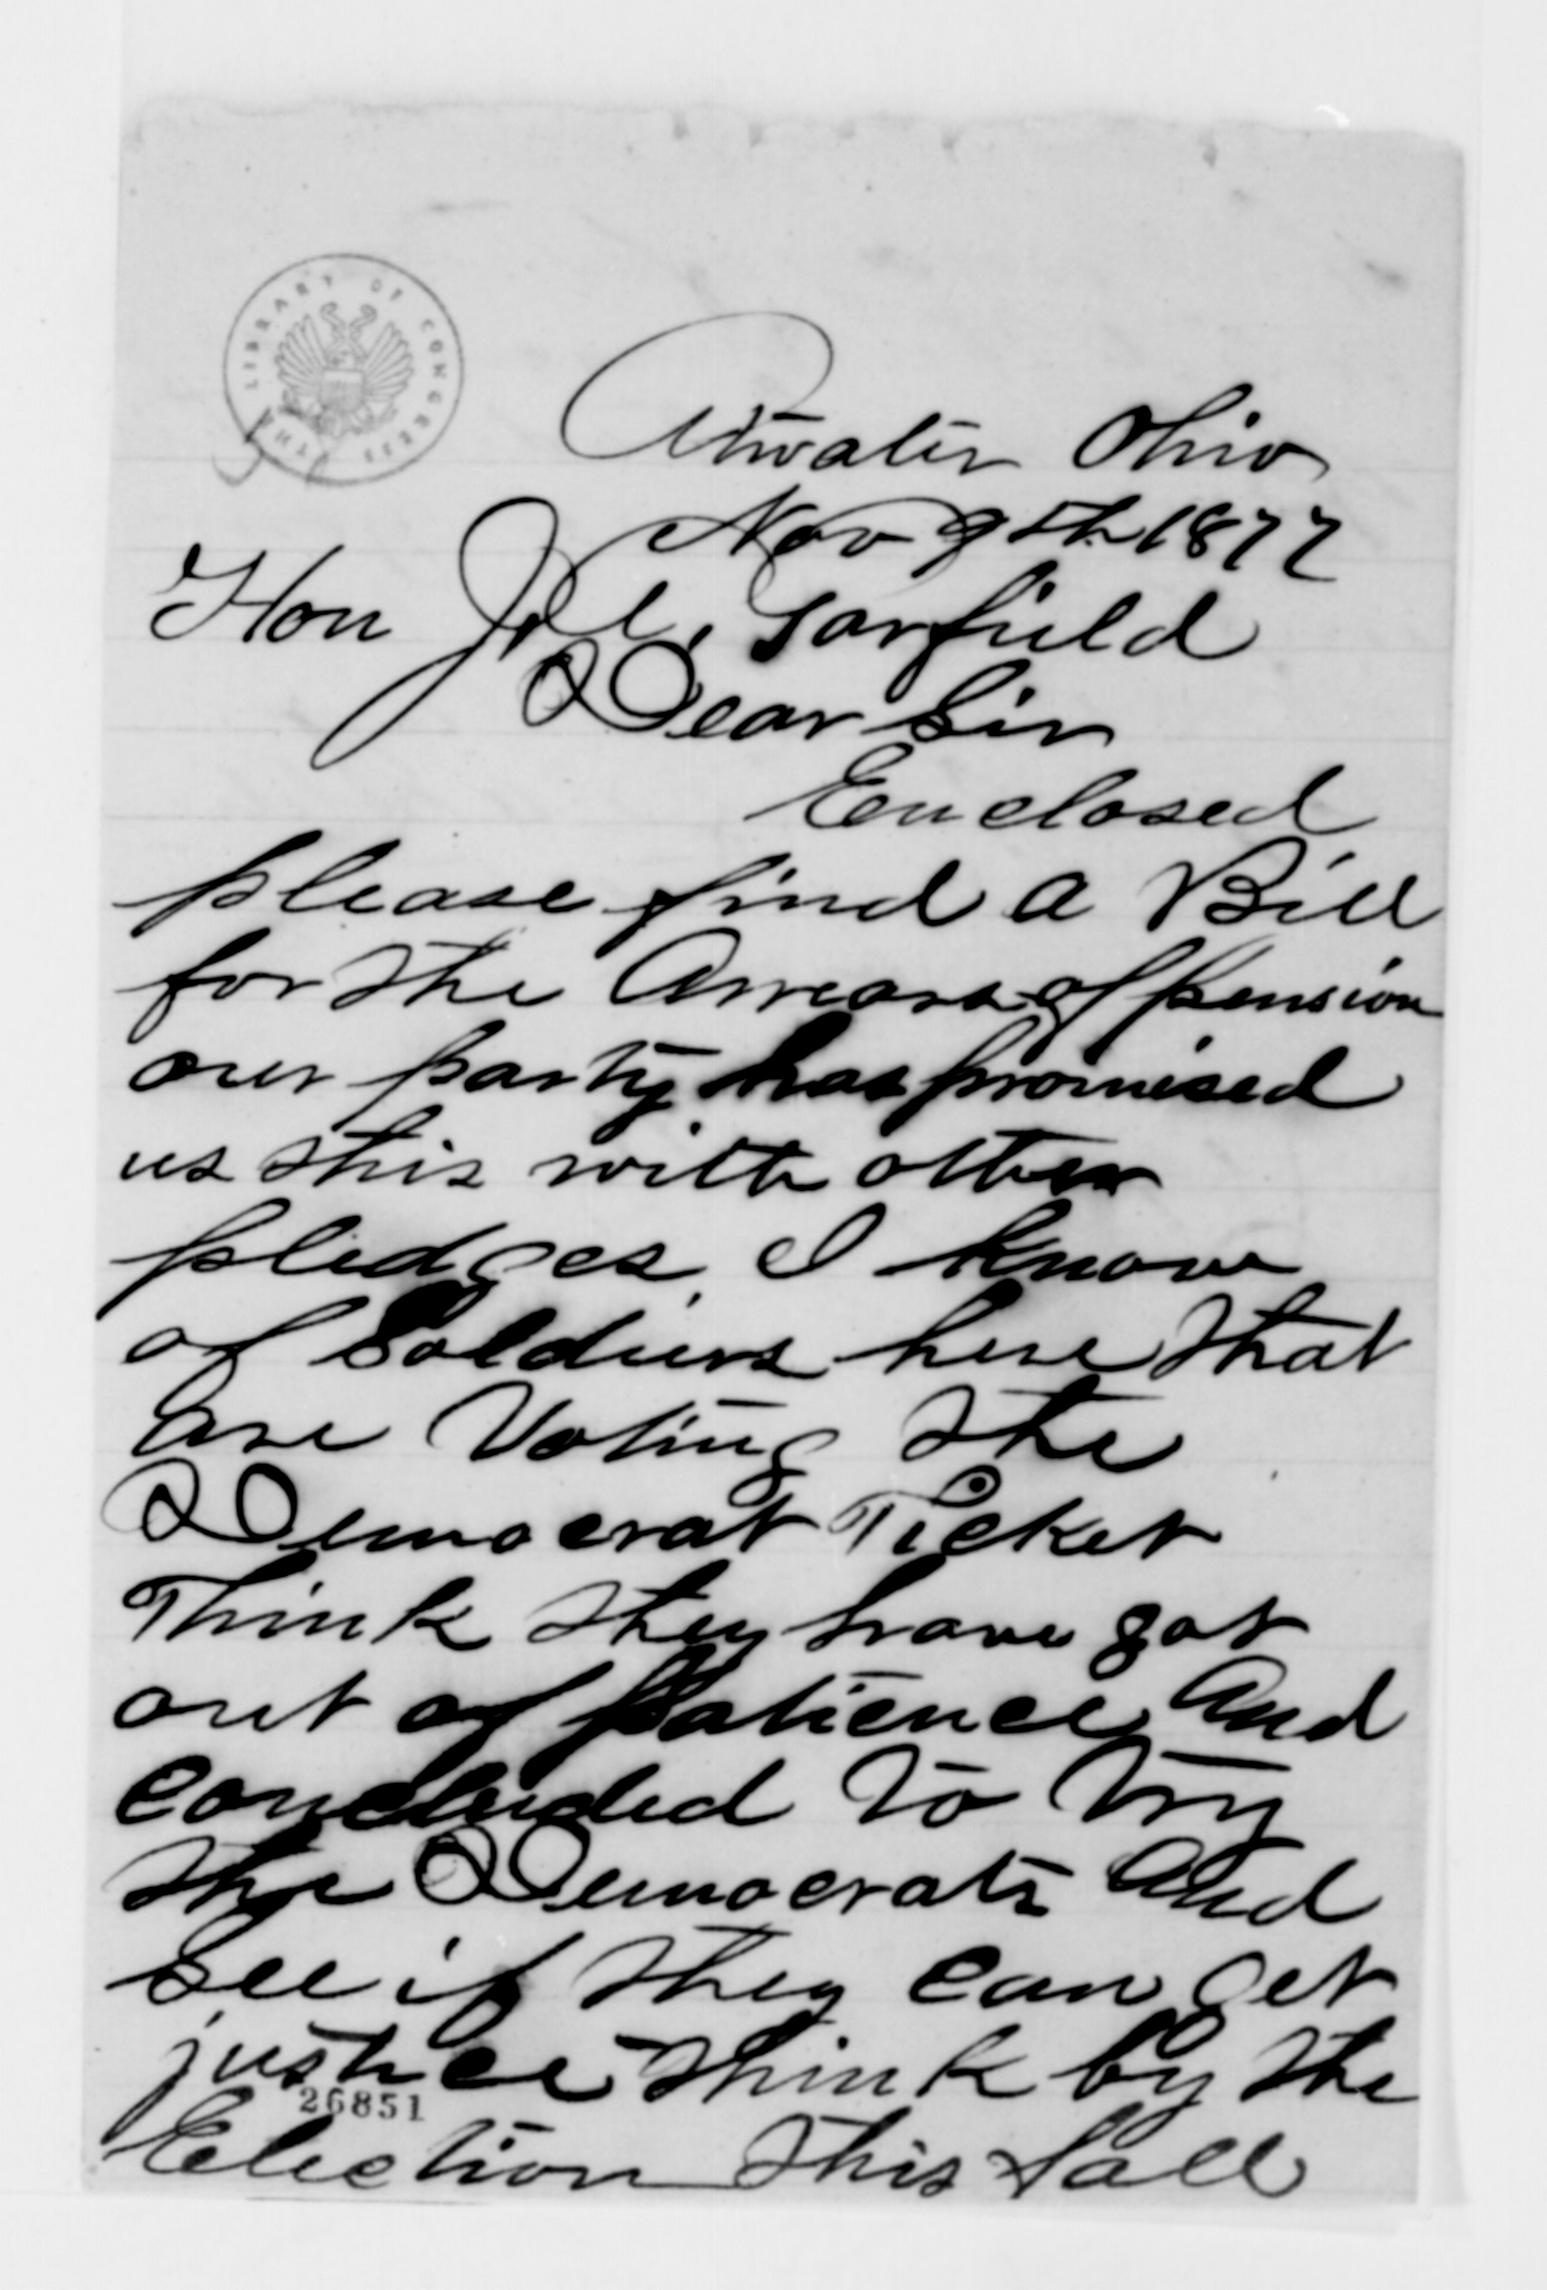 THE LIBRARY OF CONGRESS
Atwater Ohio
Nov 9th 1877
Hon J. A. Garfield
Dear Sir
Enclosed
please find a Bill
for the Arrears of pension
our party has promised
us this with other
pledges, I know
of Soldiers here that
are Voting the
Democrat Ticket
Think they have got
out of patience And
concluded to try
the Democrats And
see if they can get
justice think by the
26851
Election this fall